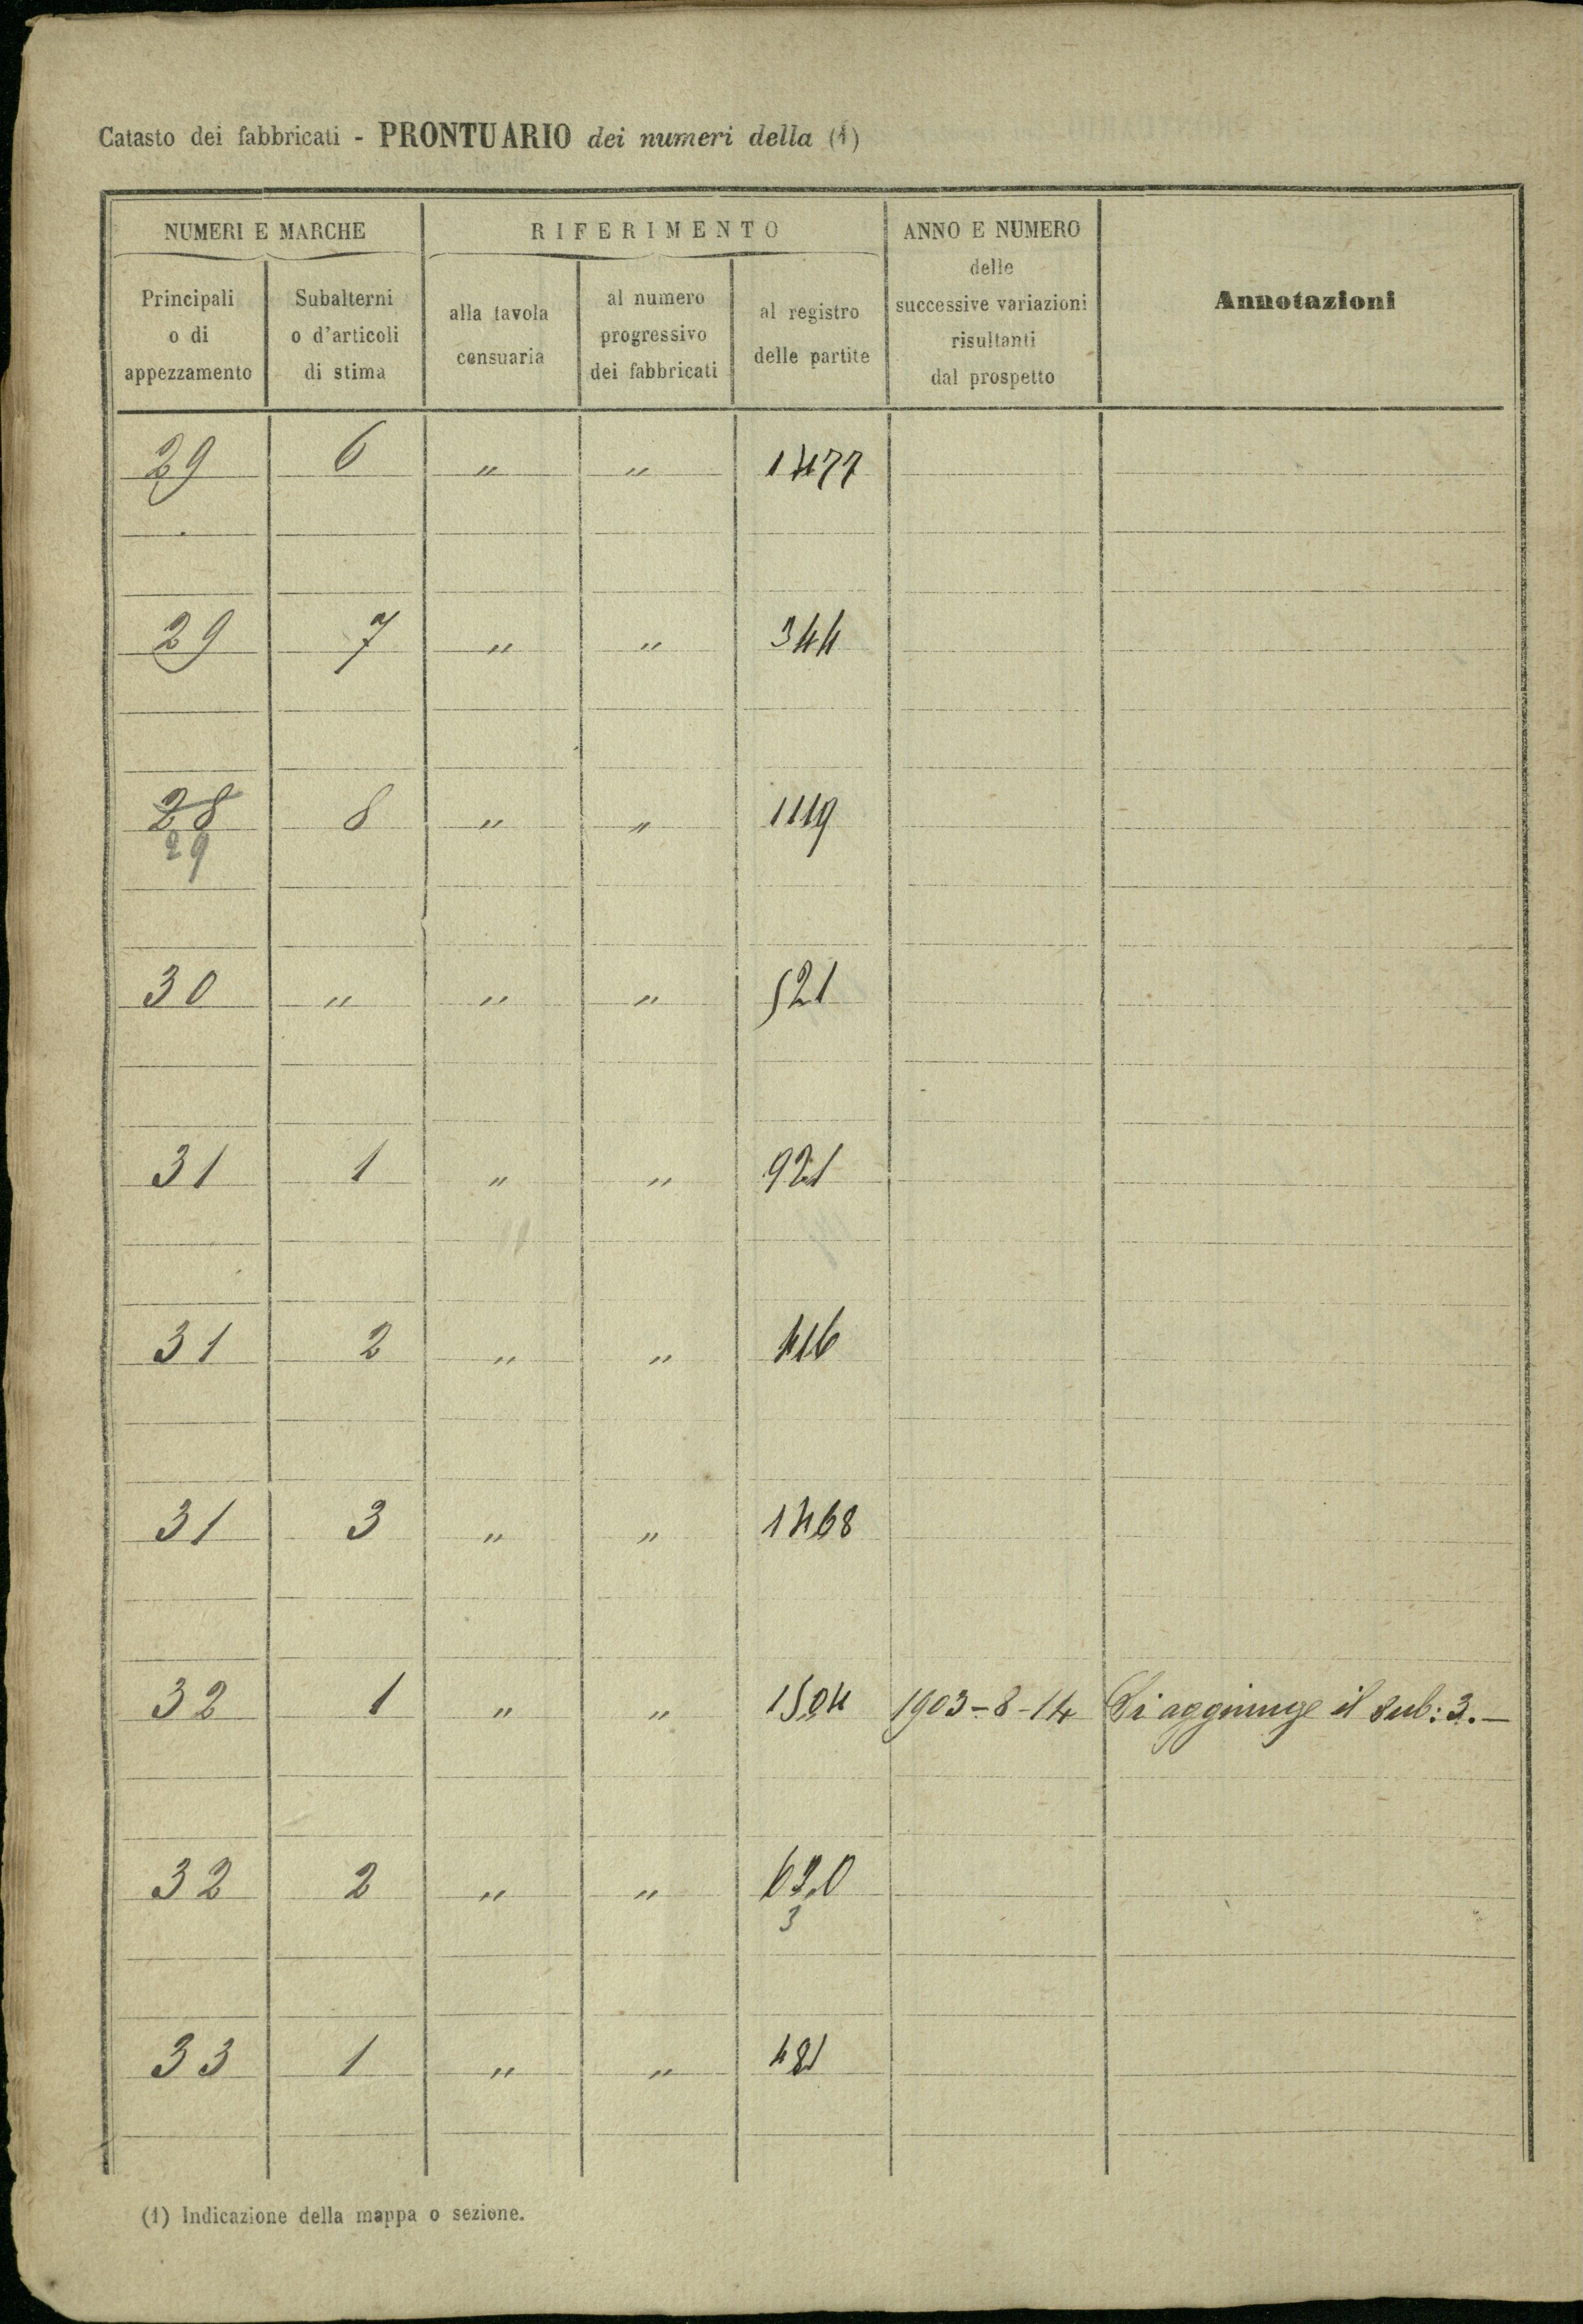 Catasto dei fabbricati - PRONTUARIO dei numeri della (1)
NUMERI E MARCHE RIFERIMENTO ANNO E NUMERO delle successive variazioni risultanti dal prospetto Annotazioni
Principali o di appezzamento Subalterni o d'articoli di stima alla tavola censuaria al numero progressivo dei fabbricati al registro delle partite
29 6 " " 1477
29 7 " " 344
28 8 " " 1119
29
30 " " " 521
31 1 " " 921
31 2 " " 416
31 3 " " 1468
32 1 " " 1504 1903-8-14 Si aggiunge il sub: 3.—
32 2 " " 620
3
33 1 " " 481
(1) Indicazione della mappa o sezione.